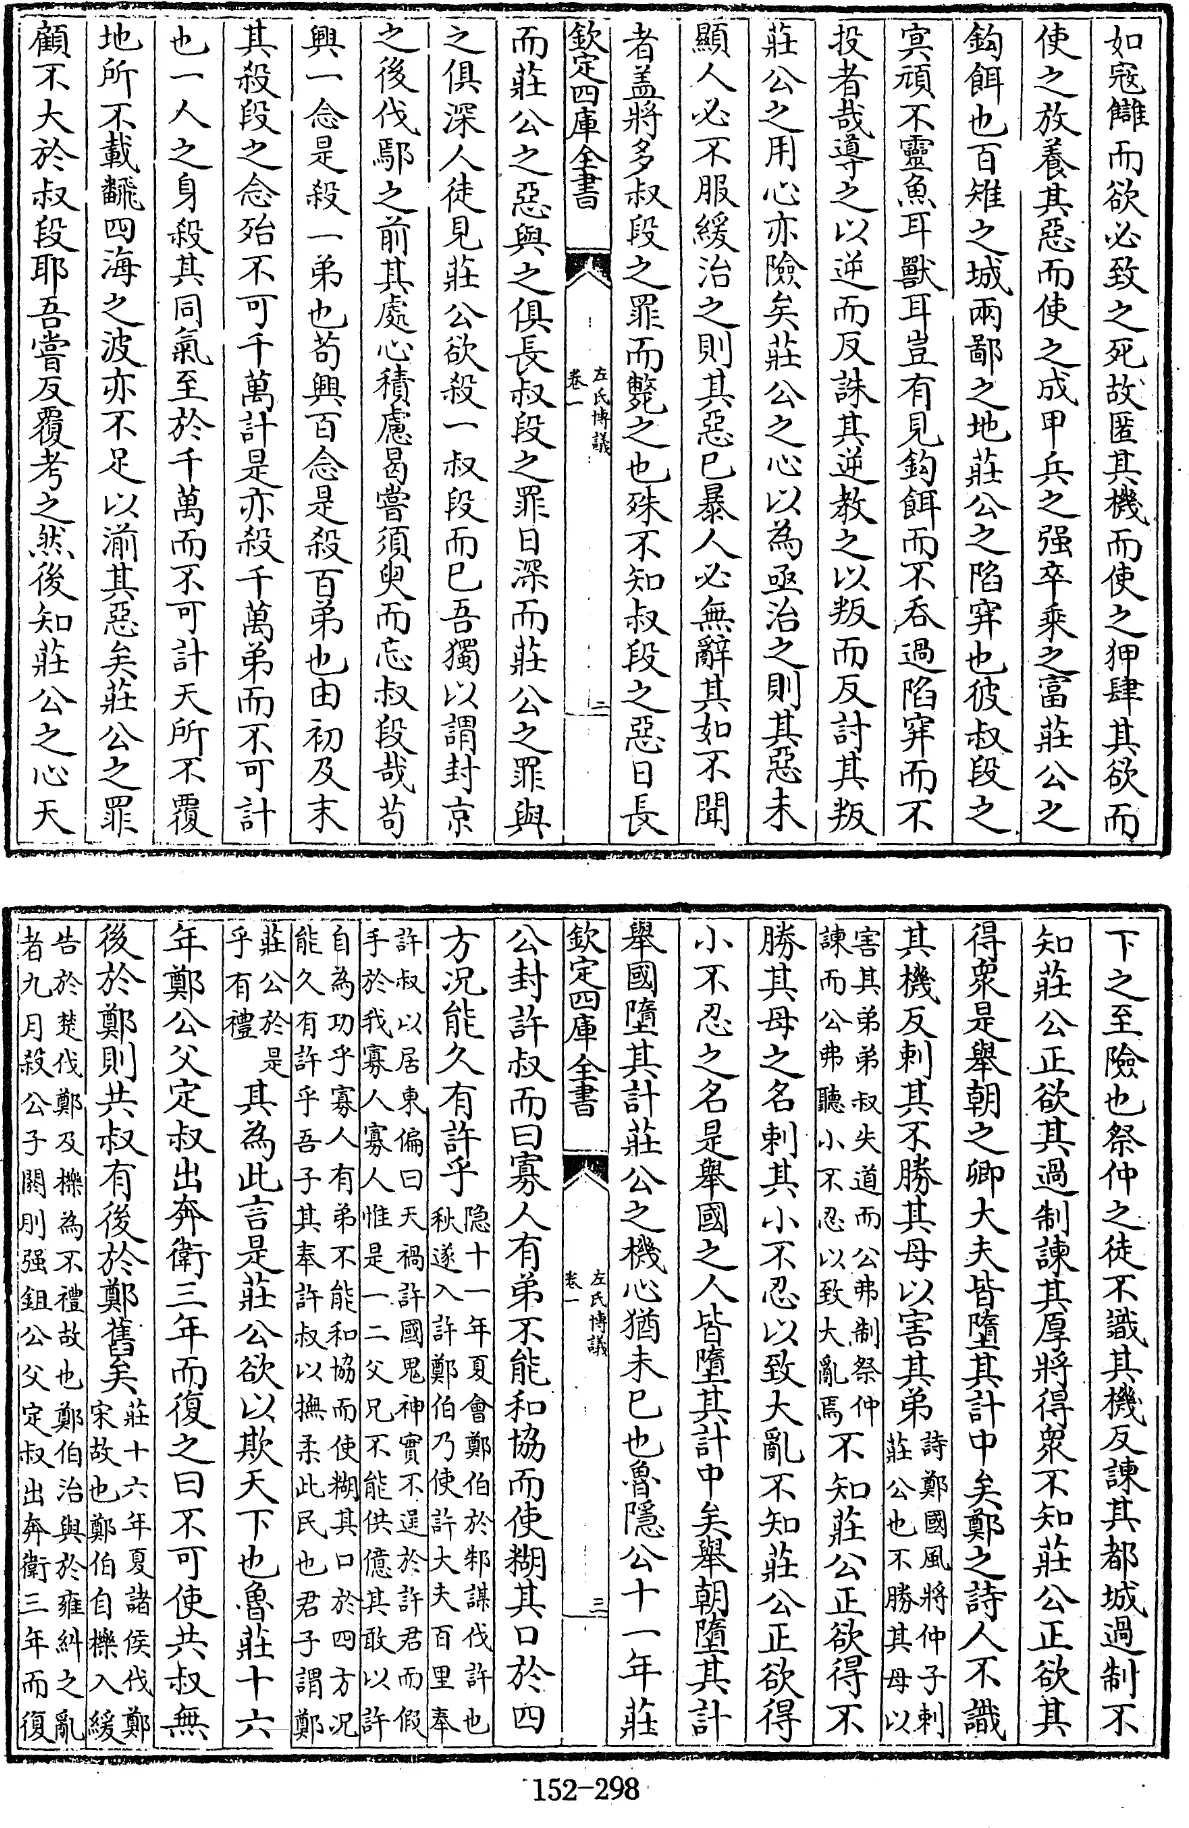 如寇讎而欲必致之死故匿其機而使之狎肆其欲而
使之放養其惡而使之成甲兵之强卒乗之富莊公之
鈎餌也百雉之城兩鄙之地莊公之陷穽也彼叔段之
冥頑不靈魚耳獸耳豈有見鈎餌而不吞過陷穽而不
投者哉導之以逆而反誅其逆教之以叛而反討其叛
莊公之用心亦險矣莊公之心以為亟治之則其惡未
顯人必不服緩治之則其惡已暴人必無辭其如不聞
者盖將多叔段之罪而斃之也殊不知叔段之惡日長
欽定四庫全書
左氏博議
卷一
二
而莊公之惡與之俱長叔段之罪日深而莊公之罪與
之俱深人徒見莊公欲殺一叔段而已吾獨以謂封京
之後伐鄢之前其處心積慮曷嘗須臾而忘叔段哉苟
興一念是殺一弟也苟興百念是殺百弟也由初及末
其殺段之念殆不可千萬計是亦殺千萬弟而不可計
也一人之身殺其同氣至於千萬而不可計天所不覆
地所不載飜四海之波亦不足以湔其惡矣莊公之罪
顧不大於叔段耶吾嘗反覆考之然後知莊公之心天
下之至險也祭仲之徒不識其機反諫其都城過制不
知莊公正欲其過制諫其厚將得衆不知莊公正欲其
得衆是舉朝之卿大夫皆墮其計中矣鄭之詩人不識
其機反刺其不勝其母以害其弟
詩鄭國風將仲子刺
莊公也不勝其母以
害其弟弟叔失道而公弗制祭仲
諫而公弗聽小不忍以致大亂焉
不知莊公正欲得不
勝其母之名刺其小不忍以致大亂不知莊公正欲得
小不忍之名是舉國之人皆墮其計中矣舉朝墮其計
舉國墮其計莊公之機心猶未已也魯隱公十一年莊
欽定四庫全書
左氏博議
卷一
三
公封許叔而曰寡人有弟不能和協而使糊其口於四
方况能久有許乎
隐十一年夏會鄭伯於郲謀伐許也
秋遂入許鄭伯乃使許大夫百里奉
許叔以居東偏曰天禍許國鬼神實不逞於許君而假
手於我寡人寡人惟是一二父兄不能供億其敢以許
自為功乎寡人有弟不能和協而使糊其口於四方况
能久有許乎吾子其奉許叔以撫柔此民也君子謂鄭
莊公於是
乎有禮
其為此言是莊公欲以欺天下也魯莊十六
年鄭公父定叔出奔衛三年而復之曰不可使共叔無
後於鄭則共叔有後於鄭舊矣
莊十六年夏諸侯伐鄭
宋故也鄭伯自櫟入緩
告於楚伐鄭及櫟為不禮故也鄭伯治與於雍糾之亂
者九月殺公子閼刖强鉏公父定叔出奔衛三年而復
152-298